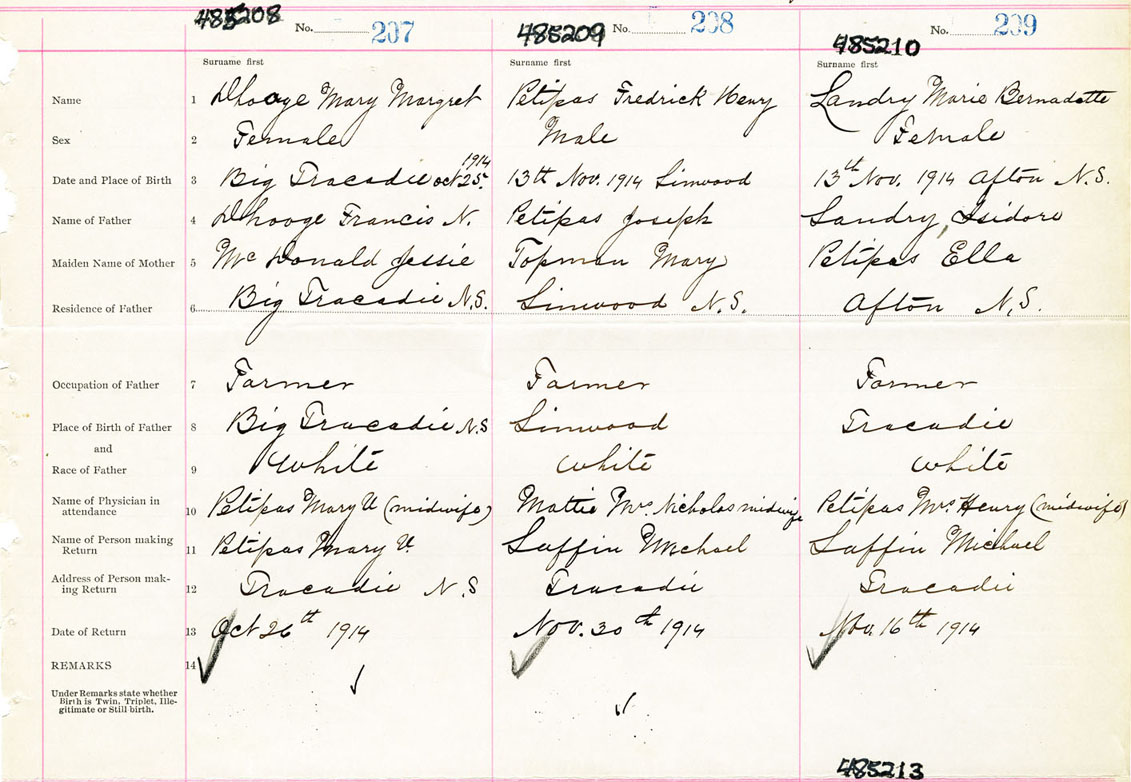 485208 No. 207 485209 No. 208 485210 No. 209
Surname first Surname first Surname first
Name 1 Dhooge Mary Margret Petipas Fredrick Henry Landry Marie Bernadette
Sex 2 Female Male Female
1914
Date and Place of Birth 3 Big Tracadie oct 25. 13th Nov. 1914 Linwood 13th Nov. 1914 Afton N.S.
Name of Father 4 Dhooge Francis N. Petipas Joseph Landry, Isidore
Maiden Name of Mother 5 McDonald Jessie Topman Mary Petipas Ella
Residence of Father 6 Big Tracadie N.S. Linwood N.S. Afton N.S.
Occupation of Father 7 Farmer Farmer Farmer
Place of Birth of Father 8 Big Tracadie N.S Linwood Tracadie
and
Race of Father 9 White White White
Name of Physician in
attendance 10 Petipas Mary V (midwife) Mattie Mrs. Nicholas midwife Petipas Mrs. Henry (midwife)
Name of Person making
Return 11 Petipas Mary V. Laffin Michael Laffin Michael
Address of Person mak-
ing Return 12 Tracadie N.S Tracadie Tracadie
Date of Return 13 Oct 26th 1914 Nov. 30th 1914 Nov. 16th 1914
REMARKS 14
Under Remarks state whether
Birth is Twin, Triplet, Ille-
gitimate or Still birth.
485213